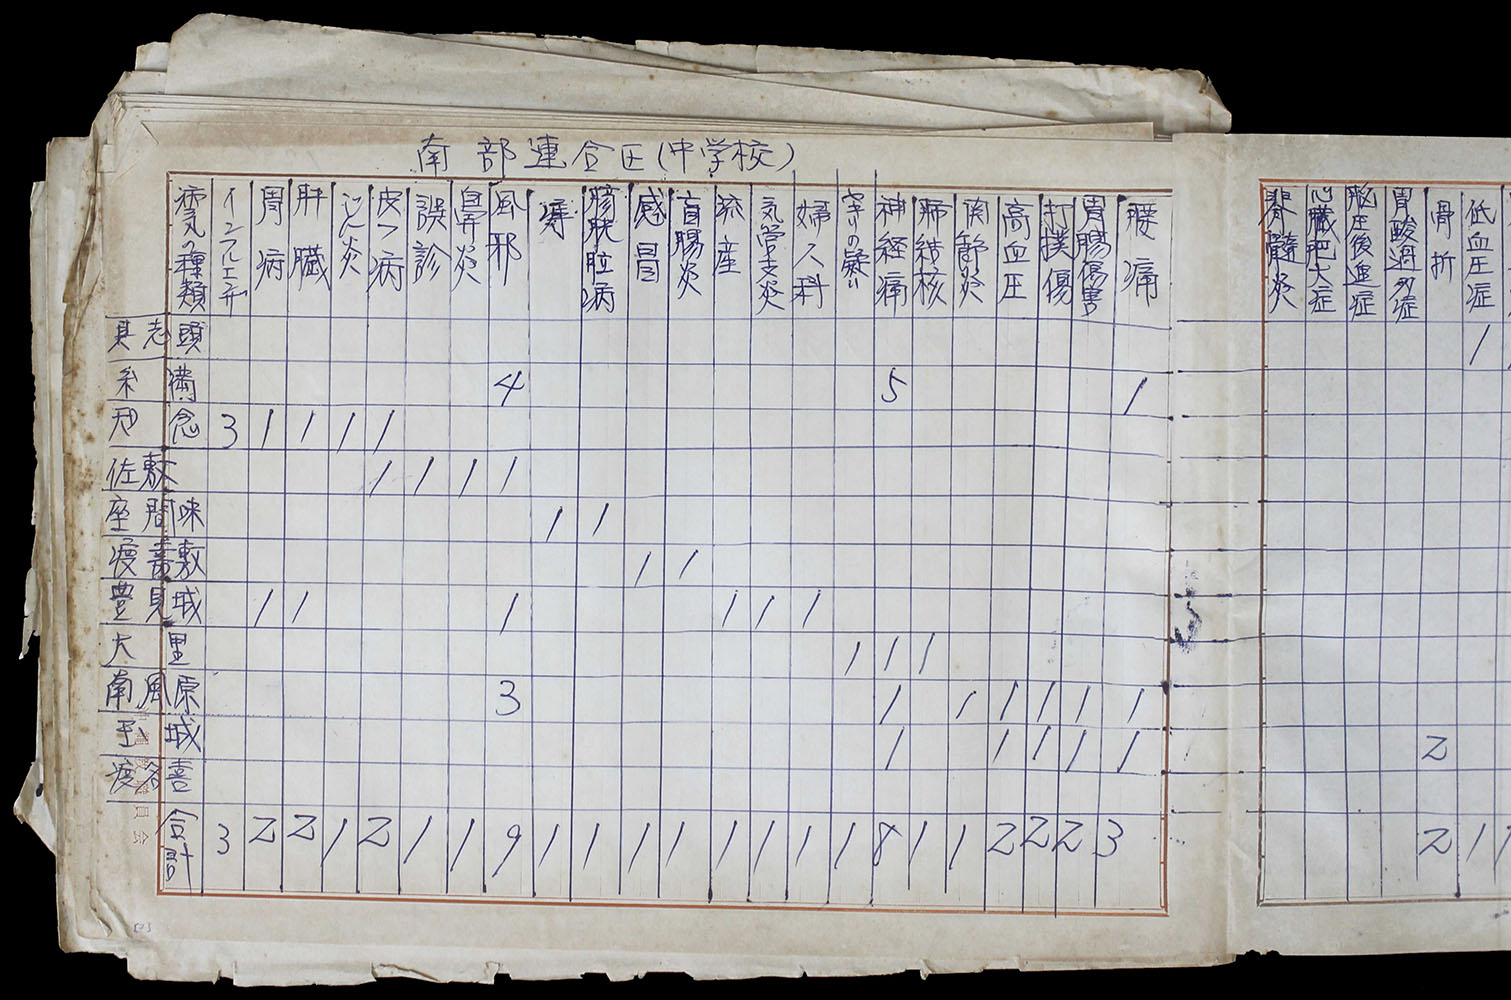 南部連合区(中学校)
病気の種類 インフルエンザ 胃病 肝臓 じん炎 皮フ病 誤診 鼻炎 風邪 痔 膀胱腔病 感冒 盲腸炎 流産 気管支炎 婦人科 神経痛 肺結核 関節炎 高血圧 打撲傷 胃腸傷害 腰痛 脊髄炎 心臓肥大症 胃酸過多症 骨折 低血圧症
具志頭 1
糸満 4 5 1
知念 3 1 1 1 1
佐敷 1 1 1 1
座間味 1 1
渡嘉敷 1 1
豊見城 1 1 1 1 1 1
大里 1 1 1
南風原 3 1 1 1 1 1 1
玉城 1 1 1 1 1 2
渡名喜
合計 3 2 2 1 2 1 1 9 1 1 1 1 1 1 1 1 8 1 1 2 2 2 3 2 1 1